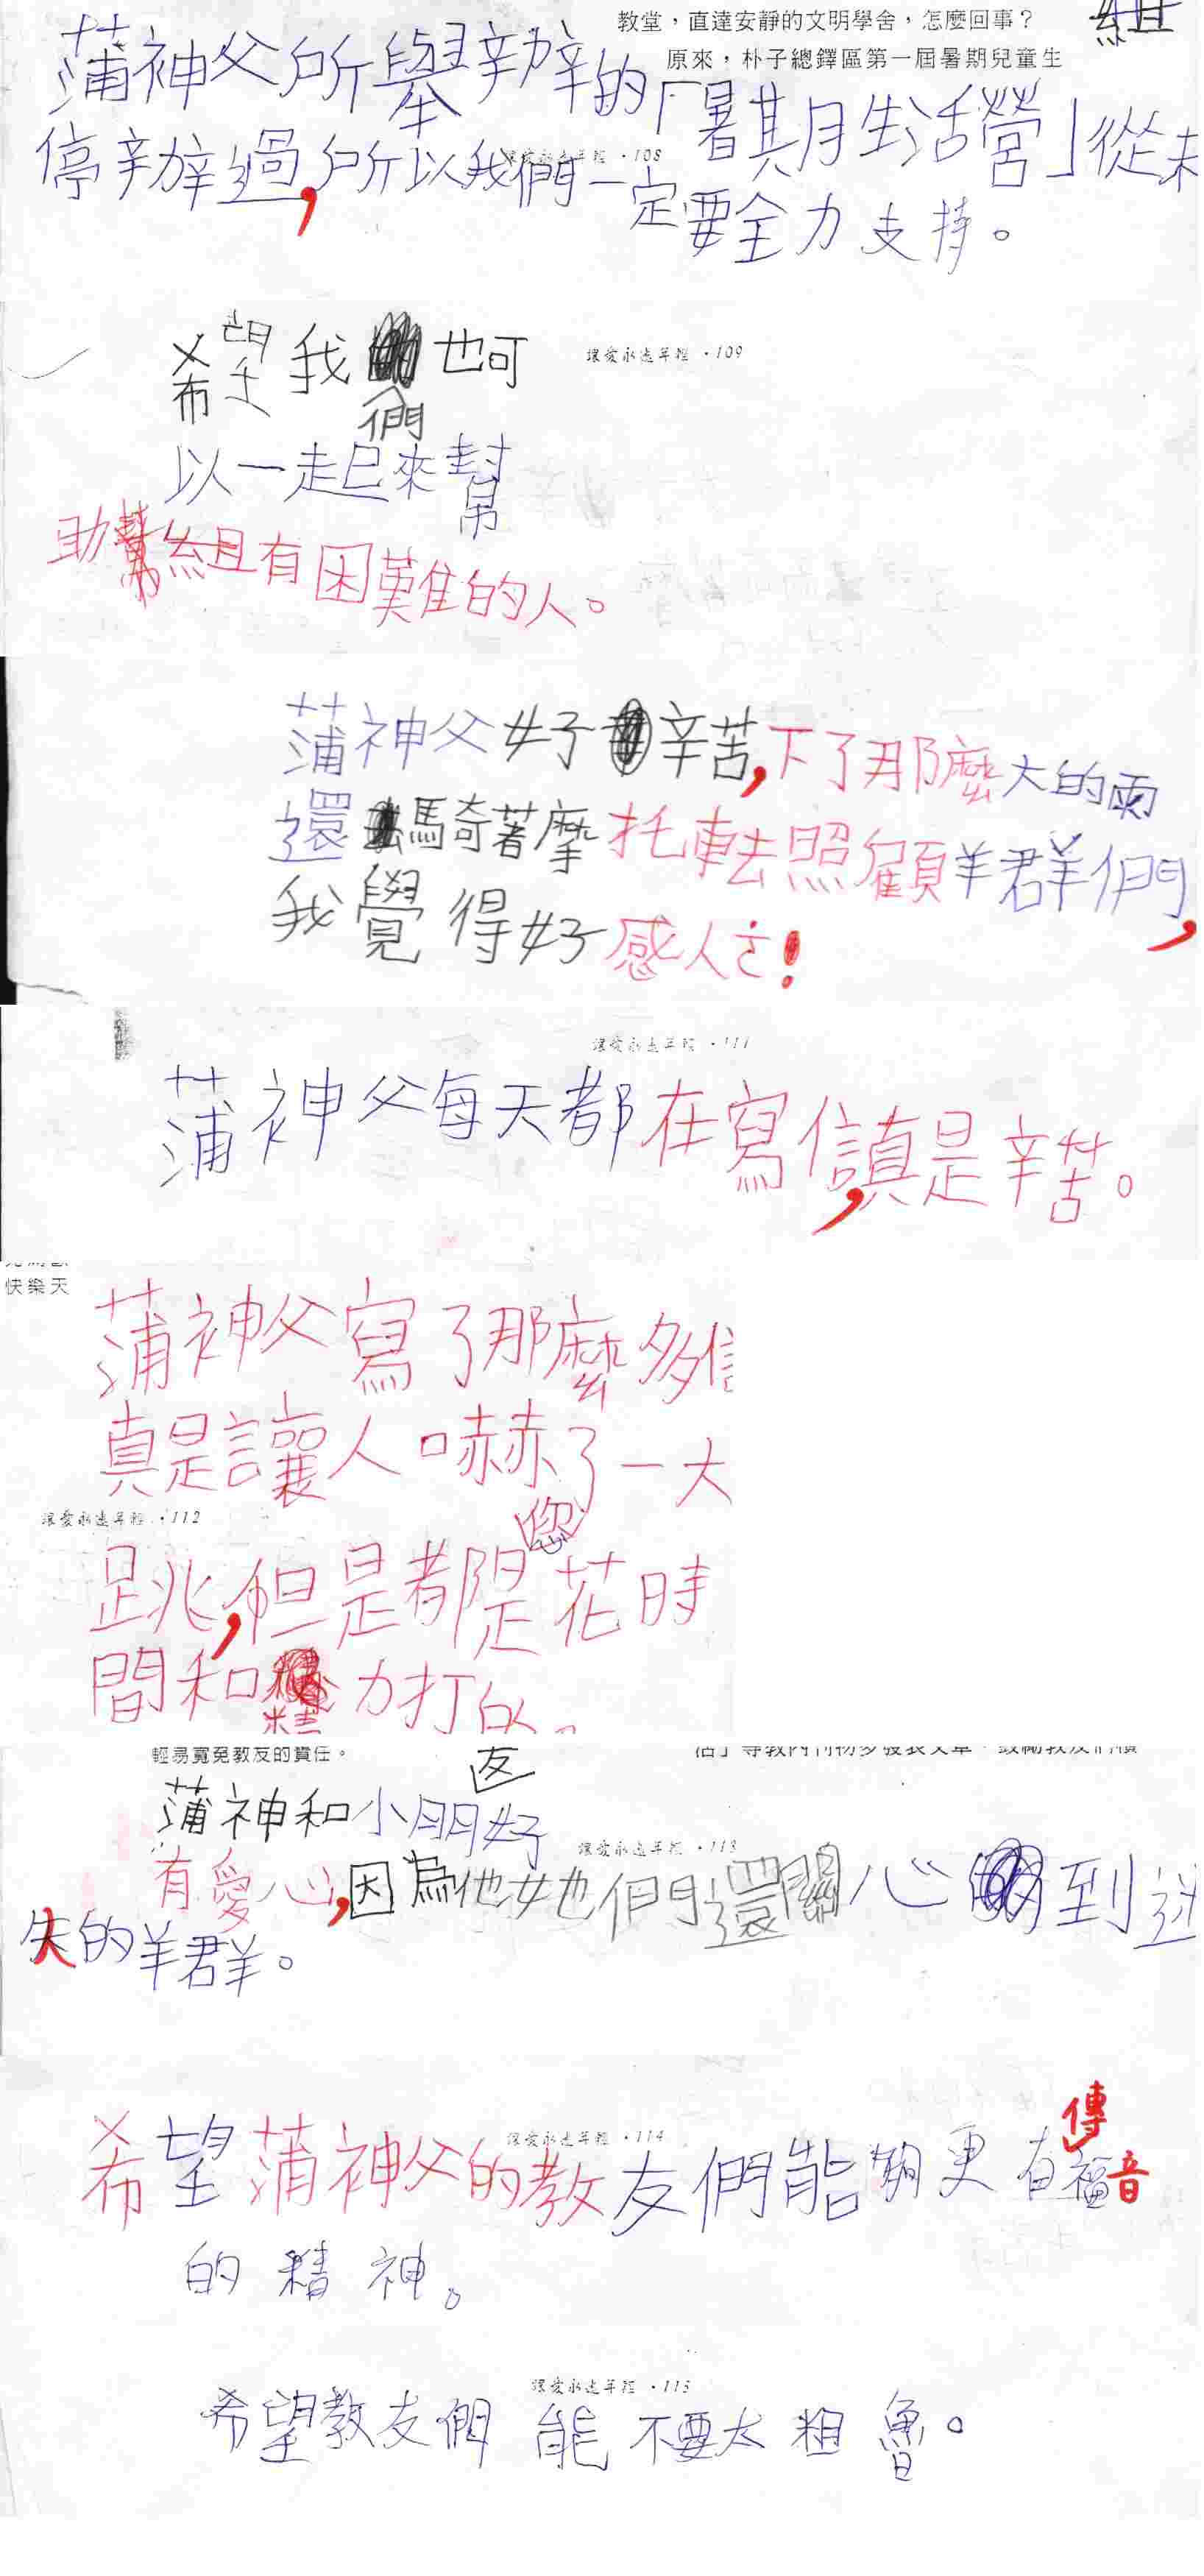 教堂，直達安靜的文明學舍，怎麼回事？
原來，朴子總鐸區第一屆暑期兒童生
蒲神父所舉辦的「暑期生活營」從未
停辦過，所以我們一定要全力支持。
讓愛永遠年輕・108
希望我們也可
讓愛永遠年輕・109
以一起來幫
助組有困難的人。
蒲神父好辛苦，下了那麼大的雨
還騎著摩托車去照顧羊群們，
我覺得好感人ㄛ！
讓愛永遠年輕・111
蒲神父每天都在寫信，真是辛苦。
快樂天
蒲神父寫了那麼多信
真是讓人嚇了一大
讓愛永遠年輕・112
跳，但是都是您花時
間和精力打的。
輕易寬免教友的責任。
蒲神和小朋友好
讓愛永遠年輕・113
有愛心，因為他她們還關心到迷
失的羊群。
希望蒲神父的教友們能夠更有傳福音
讓愛永遠年輕・114
的精神。
讓愛永遠年輕・115
希望教友們能不要太粗魯。